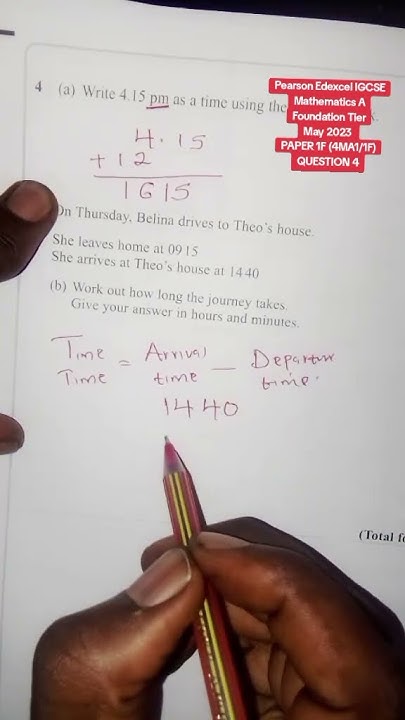 Pearson Edexcel IGCSE
Mathematics A
Foundation Tier
May 2023
PAPER 1F (4MA1/1F)
QUESTION 4
4 (a) Write 4.15 pm as a time using the
4.15
+12
1615
On Thursday, Belina drives to Theo's house.
She leaves home at 0915
She arrives at Theo's house at 1440
(b) Work out how long the journey takes.
Give your answer in hours and minutes.
Time = Arrival — Departure
Time time time.
1440
(Total